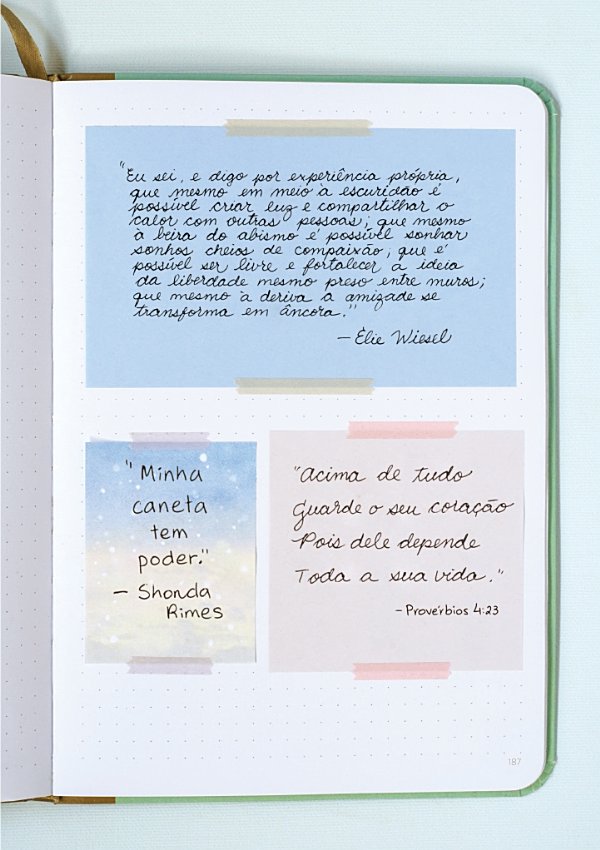 "Eu sei, e digo por experiência própria,
que mesmo em meio à escuridão é
possível criar luz e compartilhar o
calor com outras pessoas; que mesmo
à beira do abismo é possível sonhar
sonhos cheios de compaixão; que é
possível ser livre e fortalecer a ideia
da liberdade mesmo preso entre muros;
que mesmo à deriva a amizade se
transforma em âncora."
— Elie Wiesel
"Minha
caneta
tem
poder."
— Shonda
Rimes
"Acima de tudo
Guarde o seu coração
Pois dele depende
Toda a sua vida."
- Provérbios 4:23
187